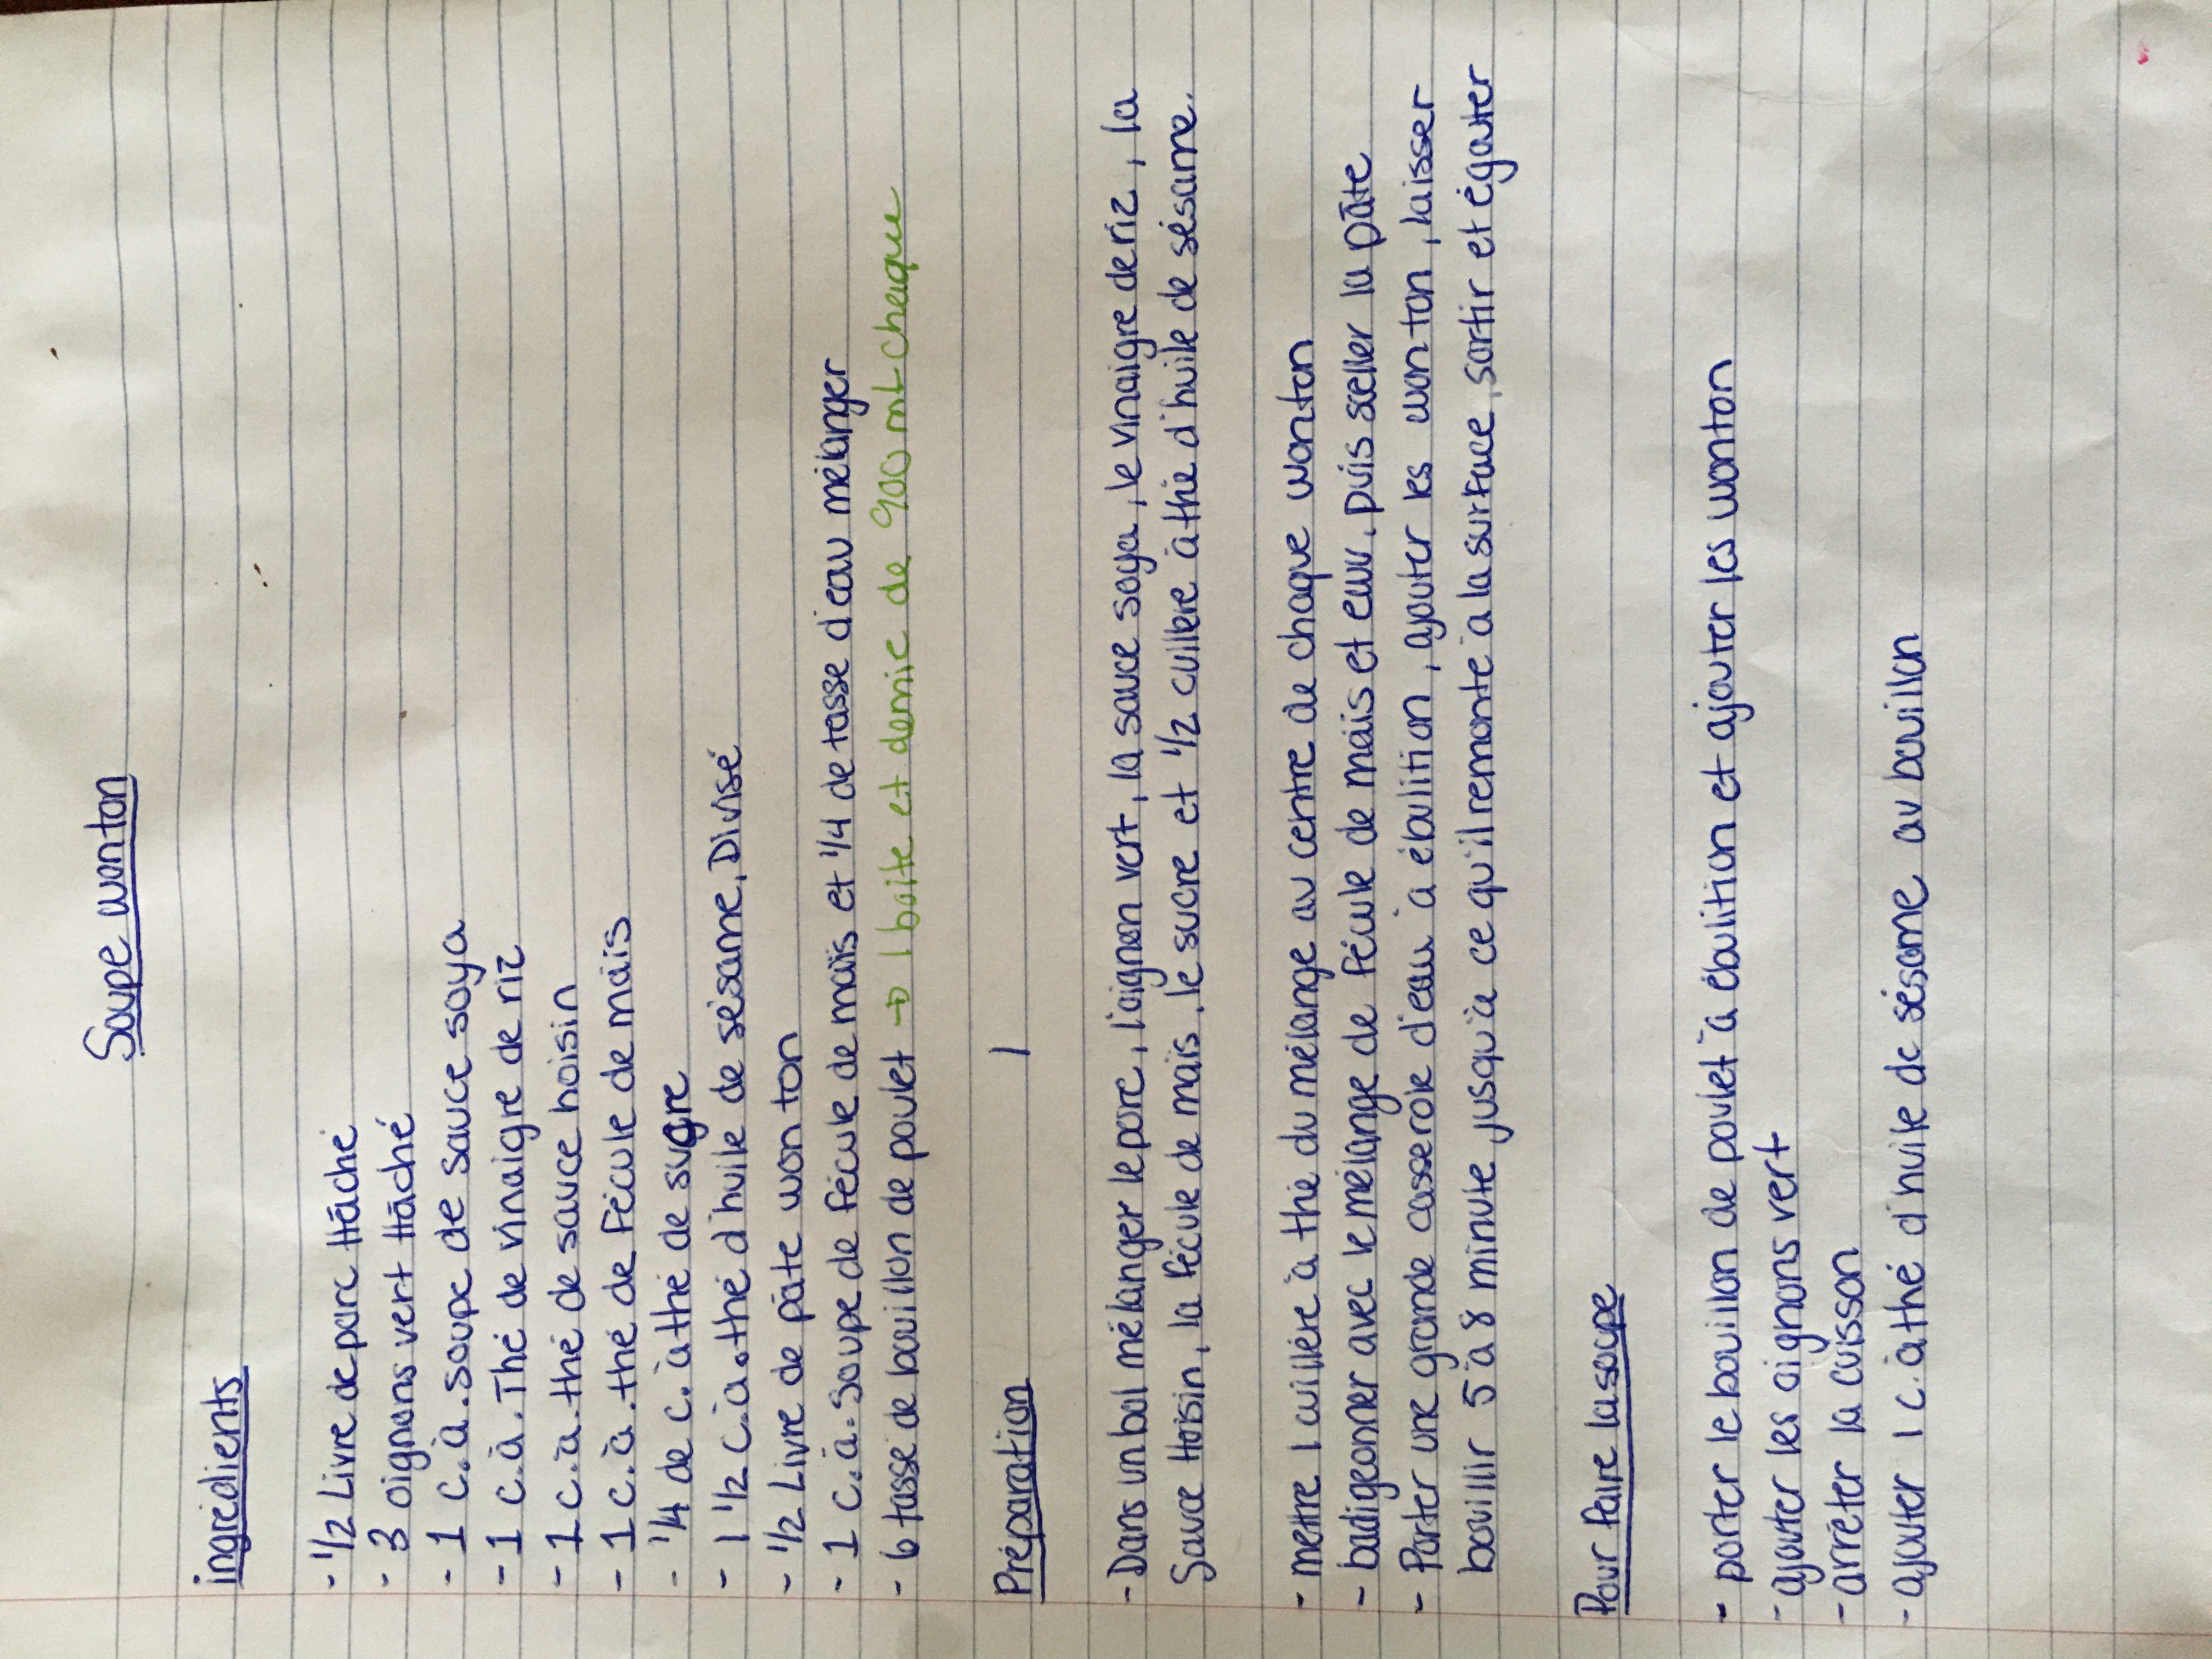 Soupe wonton
ingrédients
- 1/2 Livre de porc Hâché
- 3 oignons vert Hâché
- 1 c.à.soupe de sauce soya
- 1 c.à.Thé de vinaigre de riz
- 1 c.à.thé de sauce hoisin
- 1 c.à.thé de fécule de maïs
- 1/4 de c.à thé de sucre
- 1 1/2 c.à.thé d'huile de sésame, Divisé
- 1/2 Livre de pâte won ton
- 1 c.à.soupe de fécule de maïs et 1/4 de tasse d'eau mélanger
- 6 tasse de bouillon de poulet → 1 boite et demie de 900 ml chaque
Préparation
- Dans un bol mélanger le porc, l'oignon vert, la sauce soya, le vinaigre de riz, la
Sauce Hoisin, la fécule de maïs, le sucre et 1/2 cuillère à thé d'huile de sésame.
- mettre 1 cuillère à thé du mélange au centre de chaque wonton
- badigeonner avec le mélange de fécule de maïs et eau, puis sceller la pâte
- Porter une grande casserole d'eau à ébulition, ajouter les won ton, laisser
bouillir 5 à 8 minute jusqu'à ce qu'il remonte à la surface, sortir et égouter
Pour faire la soupe
- porter le bouillon de poulet à ébulition et ajouter les wonton
- ajouter les oignons vert
- arrêter la cuisson
- ajouter 1 c.à thé d'huile de sésame au bouillon